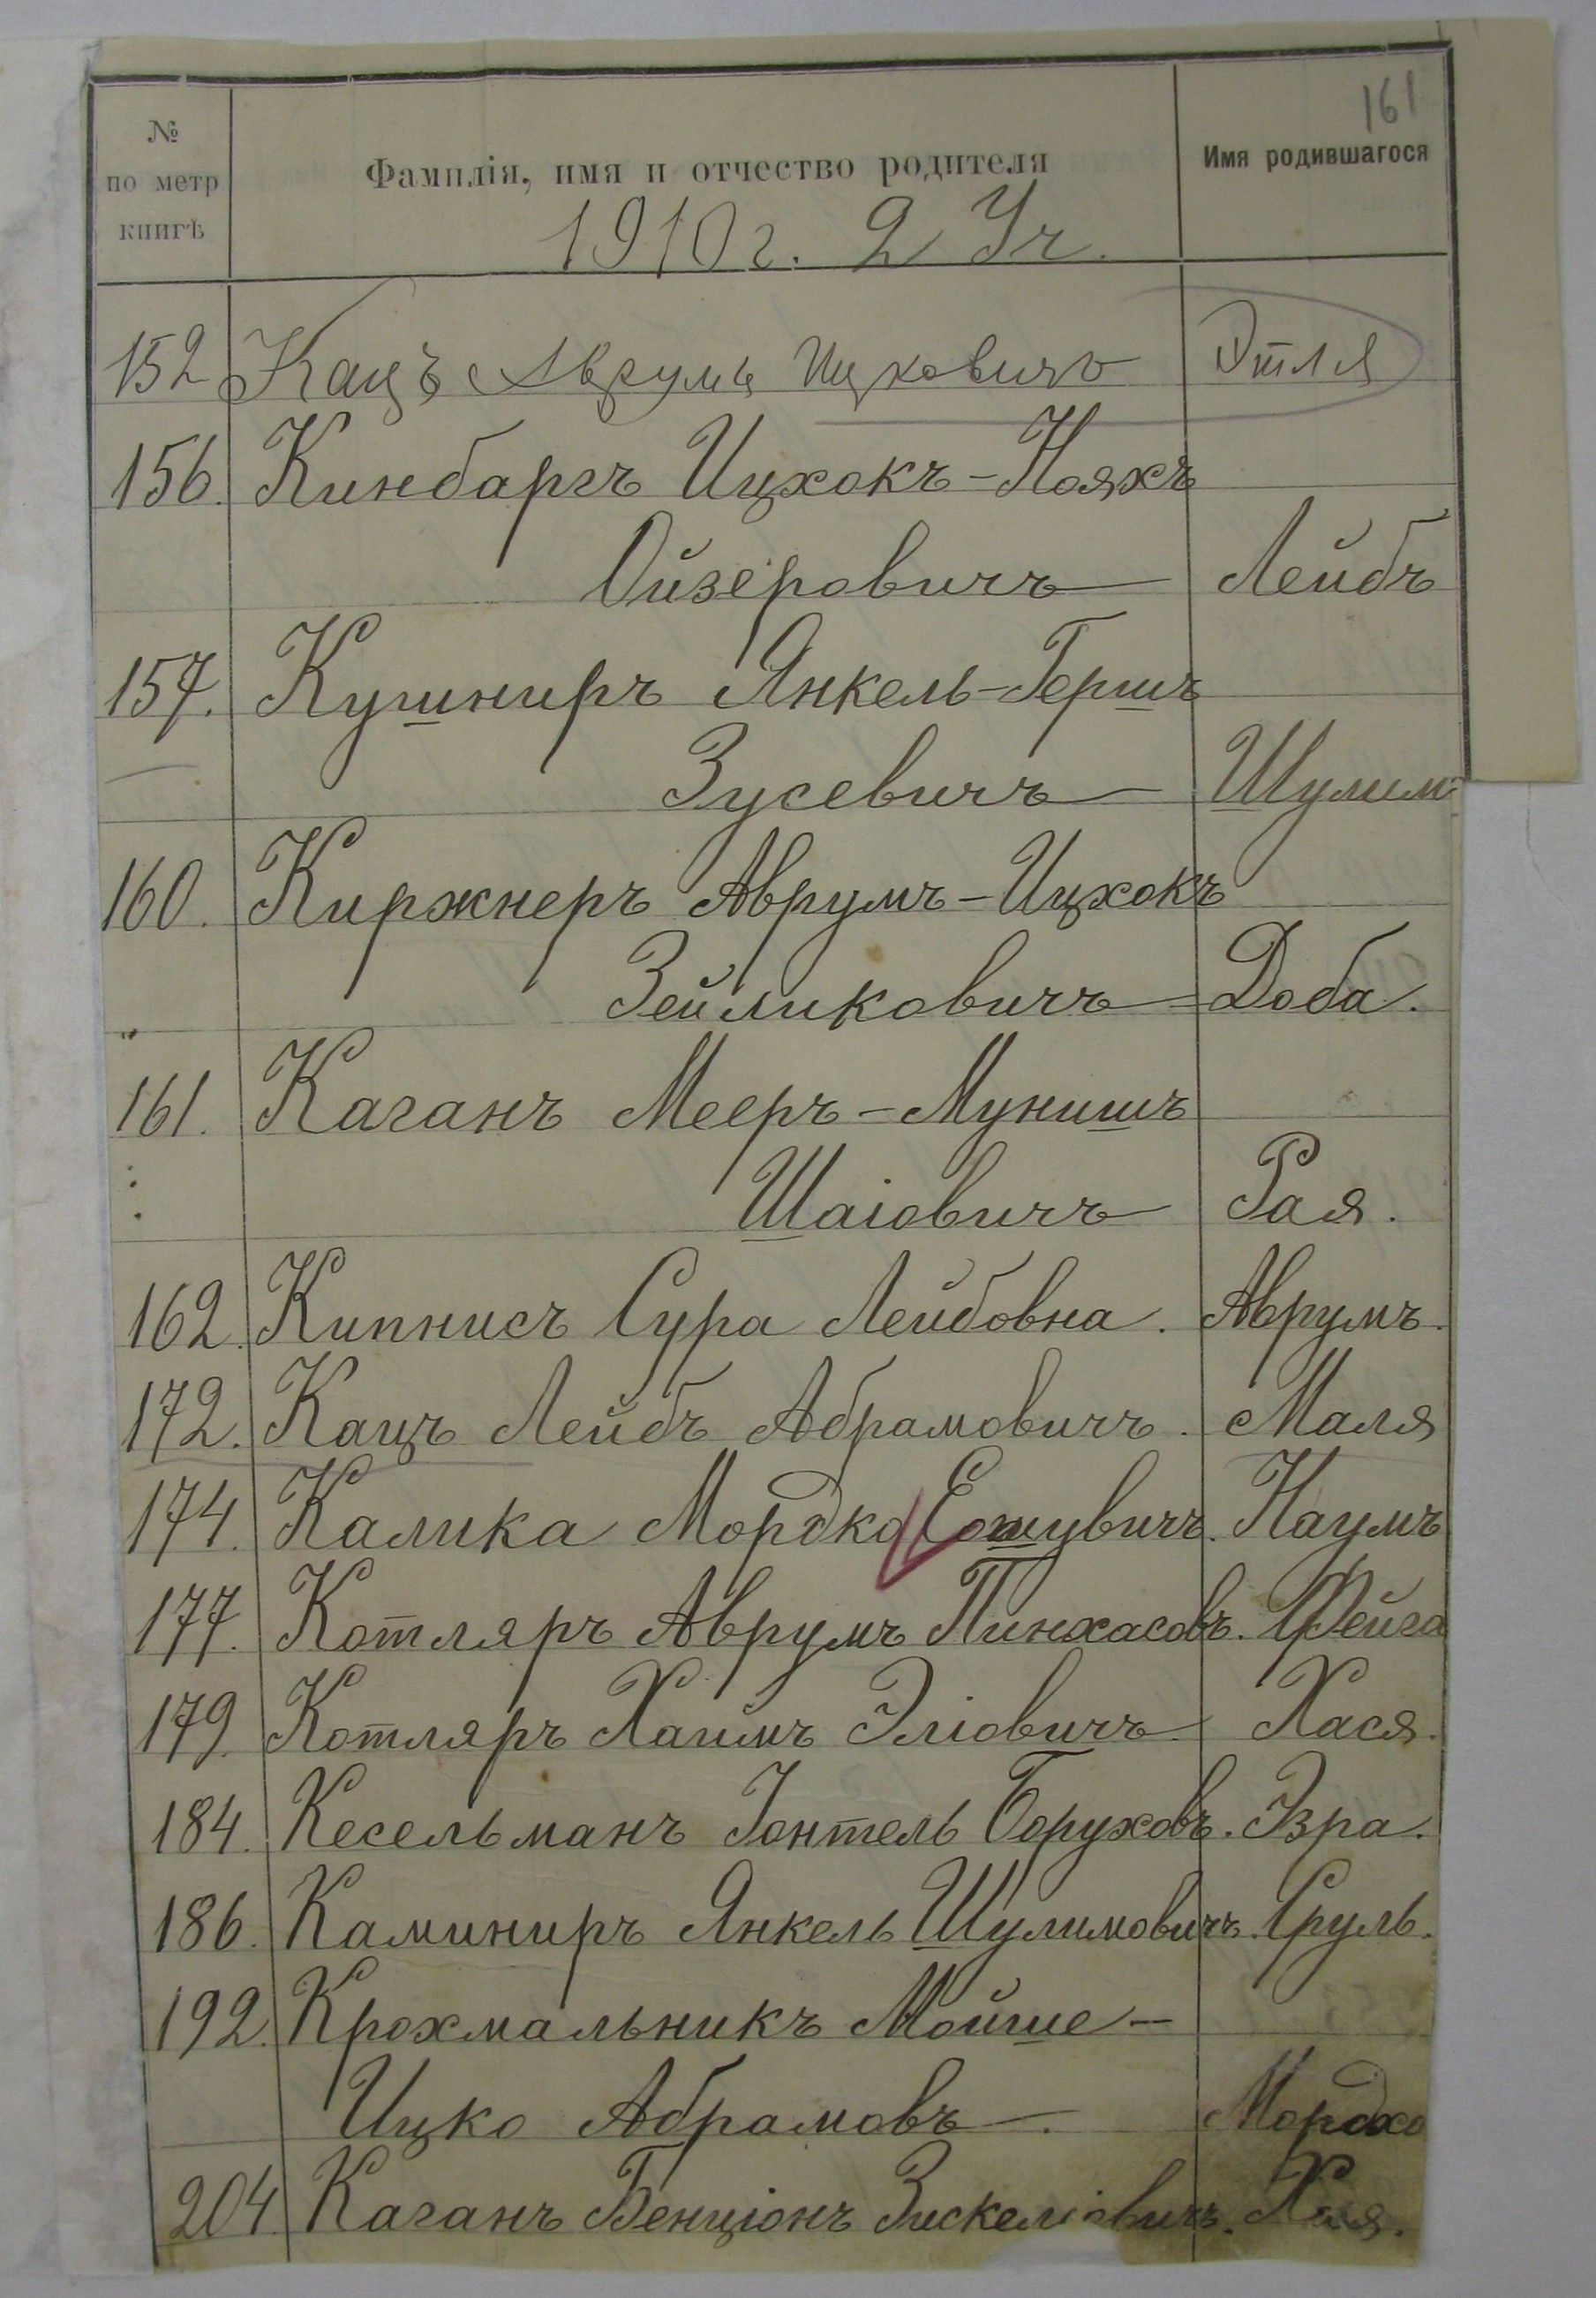 161
№
по метр
книгѣ
Фамилія, имя и отчество родителя
Имя родившагося
1910 г. 2 Уч.
152 Кацъ Аврумъ Ицковичъ Этля
156. Кинбаргъ Ицхокъ-Нояхъ
Ойзеровичъ Лейбъ
157. Кушниръ Янкель-Гершъ
Зусевичъ Шулим
160. Киржнеръ Аврумъ-Ицхокъ
Зейликовичъ Доба.
161. Каганъ Мееръ-Мунишъ
Шаіовичъ Рая.
162. Кипнисъ Сура Лейбовна. Аврумъ.
172. Кацъ Лейбъ Абрамовичъ. Маля
174. Калика Мордко Ешувичъ. Наумъ
177. Котляръ Аврумъ Пинхасовъ. Фейга
179. Котляръ Хаимъ Эліовичъ Хася.
184. Кесельманъ Іонтель Боруховъ. Эзра.
186. Каминиръ Янкель Шулимовичъ. Сруль.
192. Крохмальникъ Мойше-
Ицко Абрамовъ. Мордко
204. Каганъ Бенціонъ Зискеліовичъ.